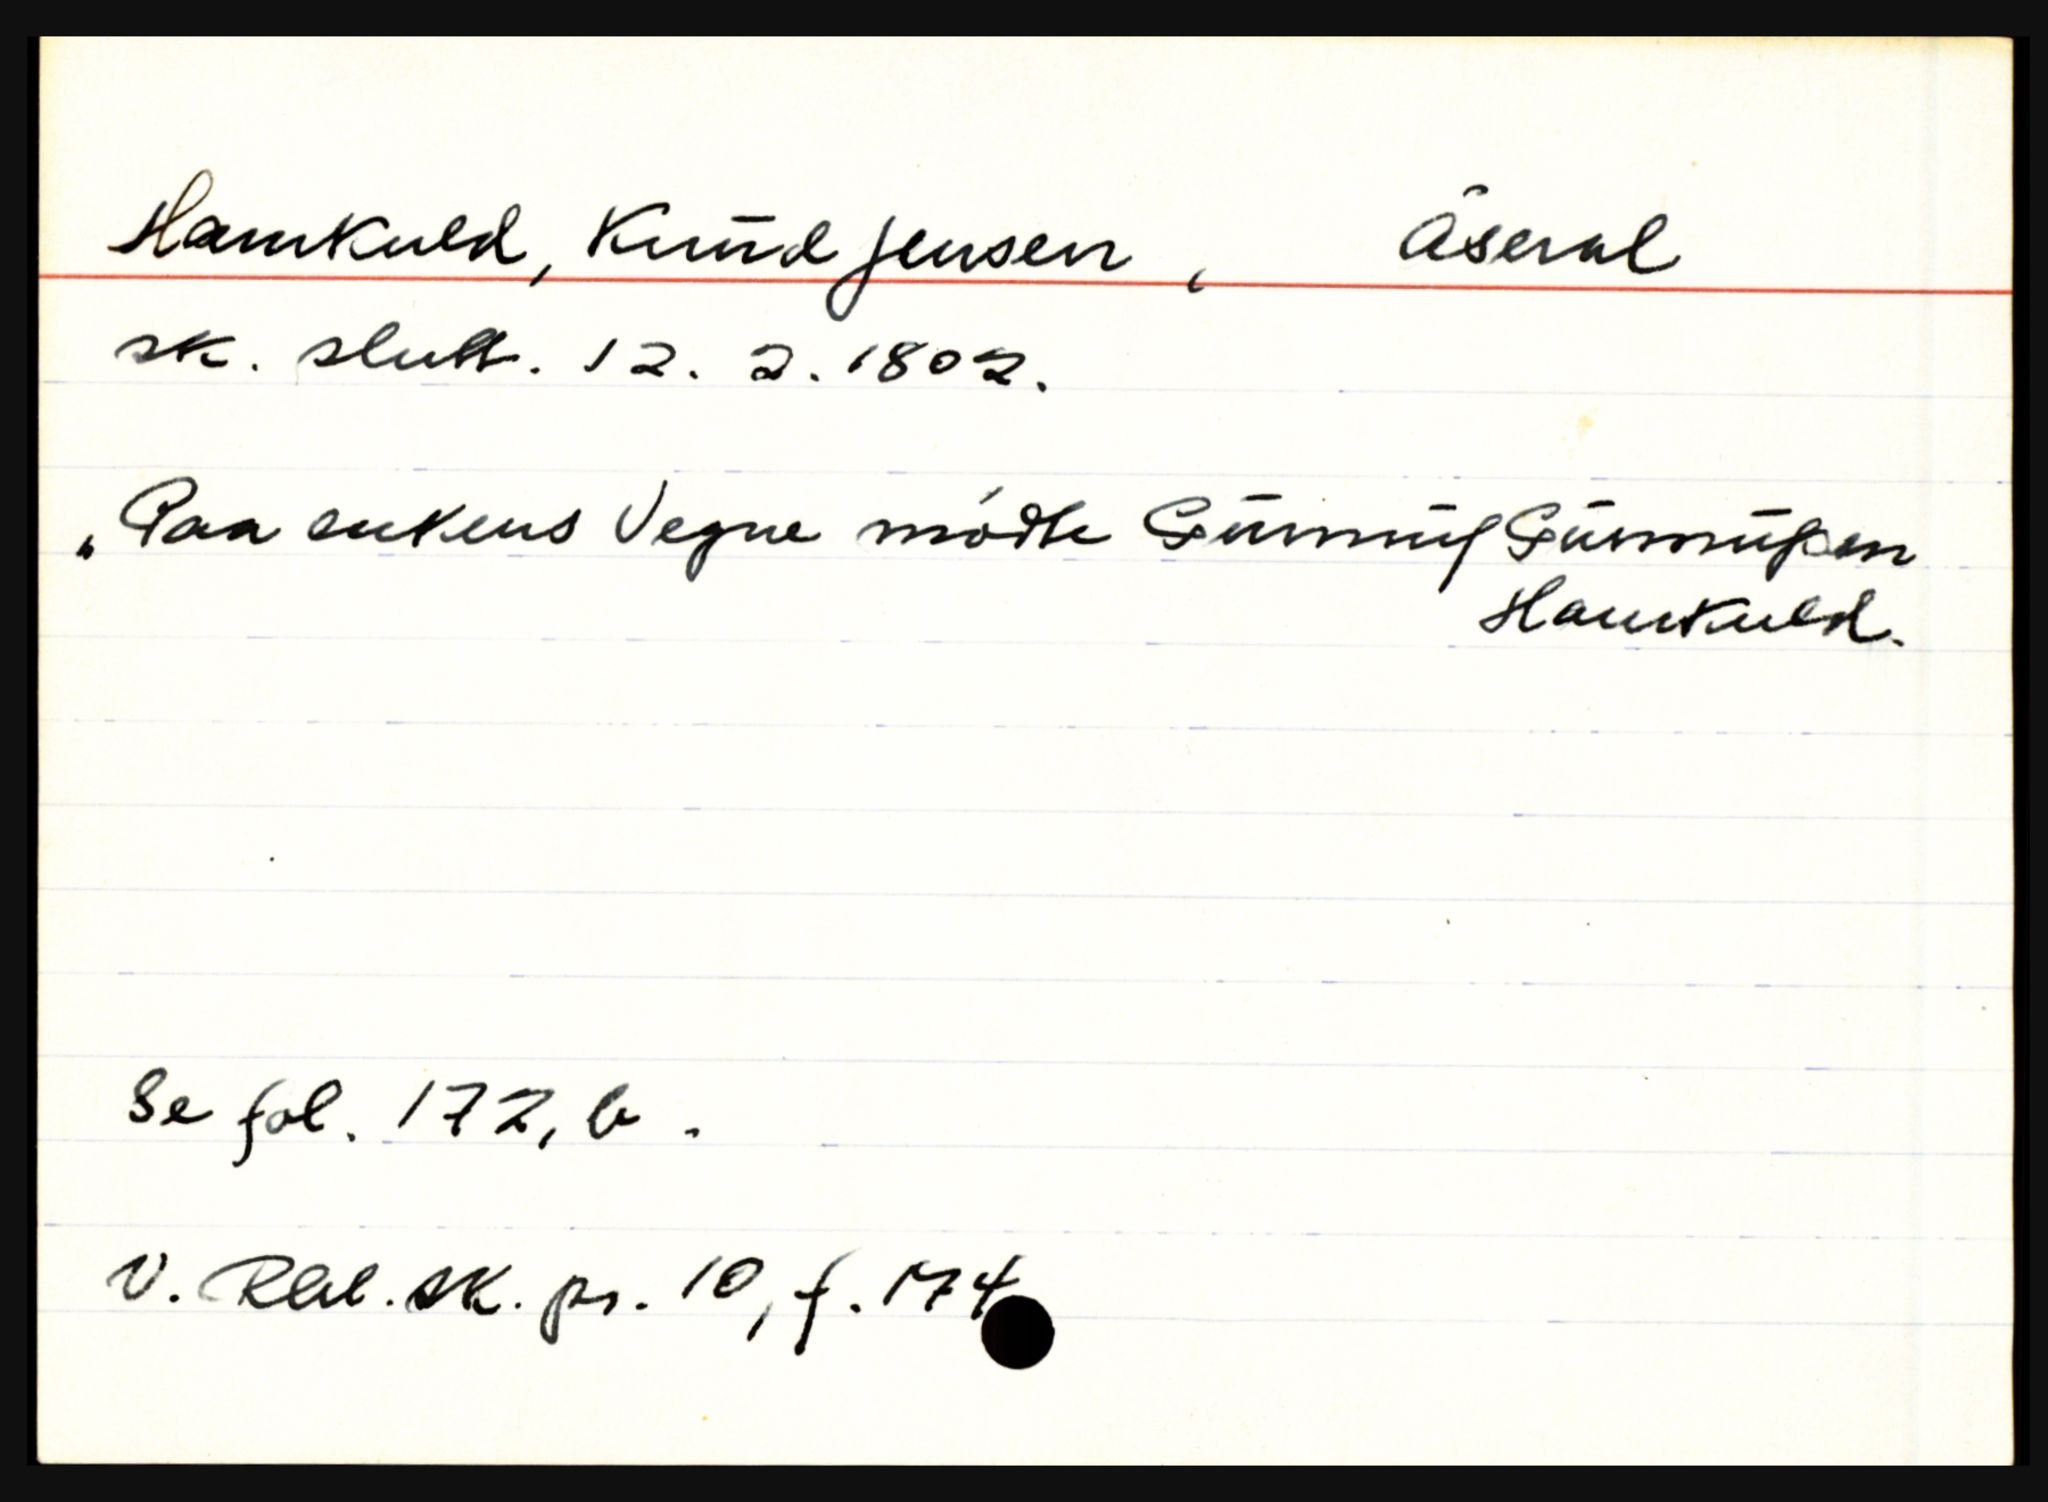 Hamkuld, Knud Jensen, Åseral
sk. slutt. 12. 2. 1802.
„Paa enkens Vegne mødte Gunnuf Gunnufsen
Hamkuld.
Se fol. 172, b.
V. Rbl. sk. pr. 10, f. 174